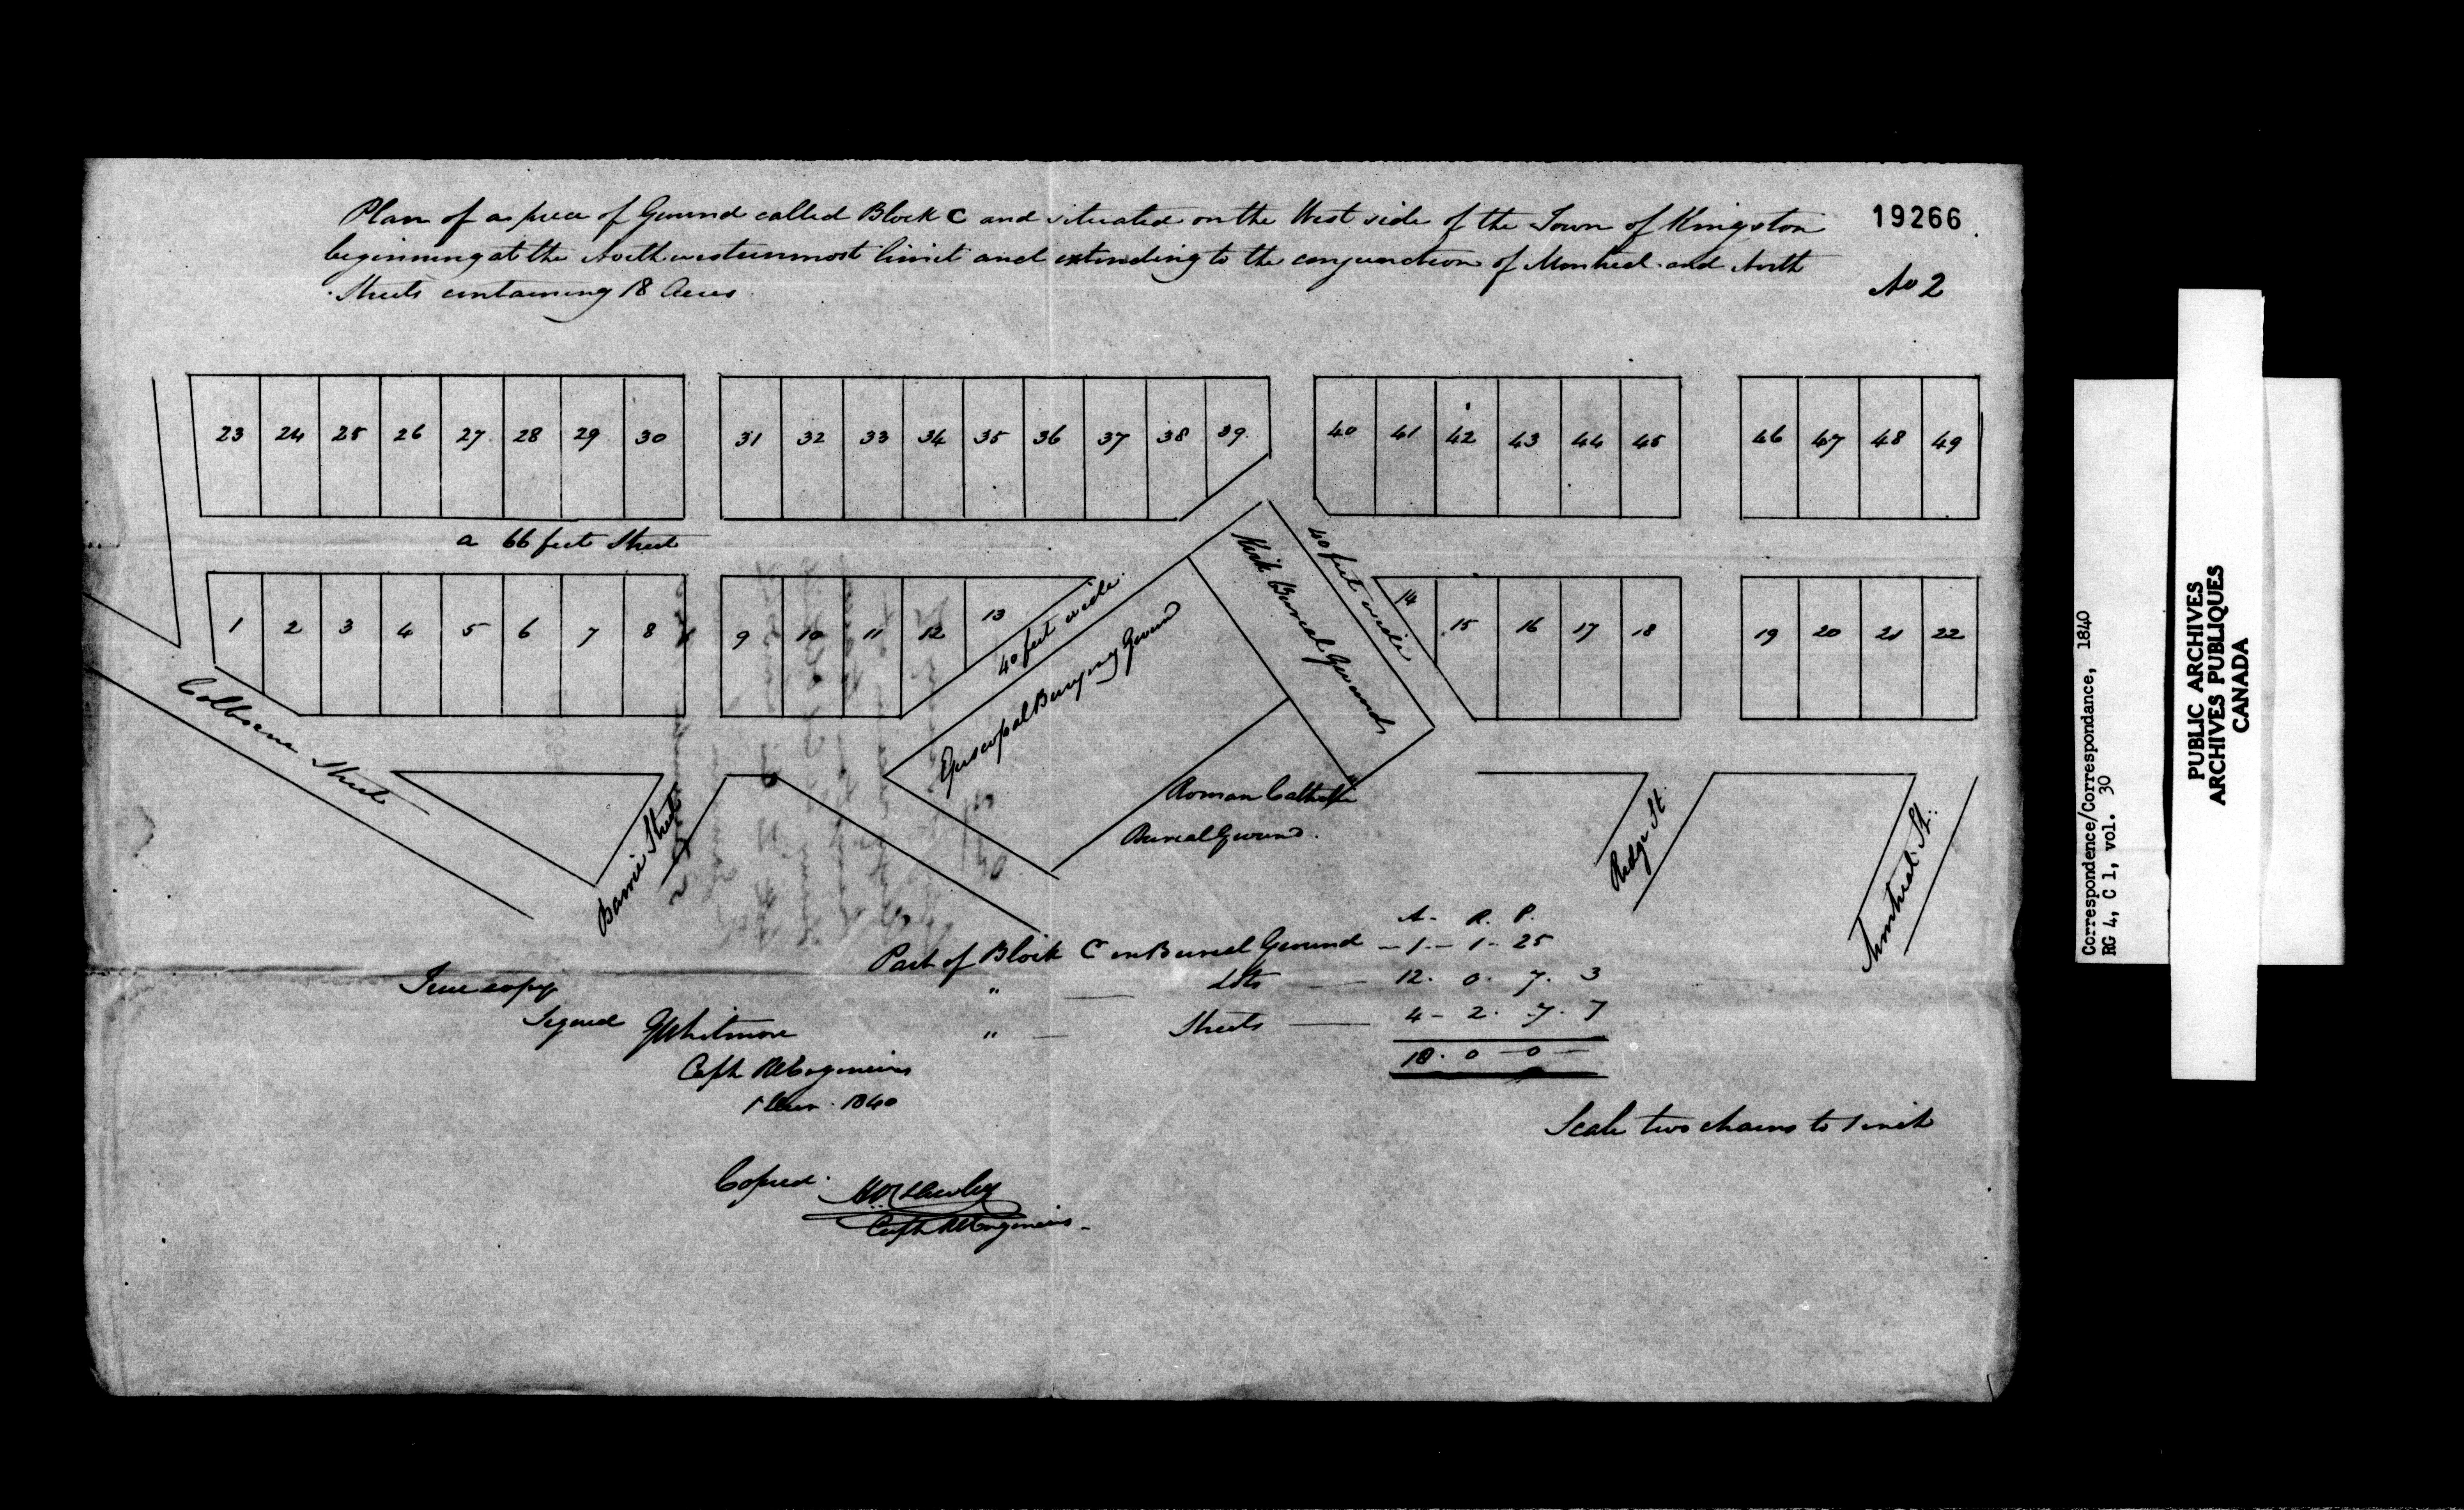 Plan of a piece of Ground called Block C and situated on the West side of the Town of Kingston
beginning at the North westernmost limit and extending to the conjunction of Montreal and North
Streets containing 18 Acres
19266
No 2
23 24 25 26 27 28 29 30 31 32 33 34 35 36 37 38 39 40 41 42 43 44 45 46 47 48 49
a 66 feet Street
1 2 3 4 5 6 7 8 9 10 11 12 13 14 15 16 17 18 19 20 21 22
40 feet wide
40 feet wide
Episcopal Burying Ground
Kirk Burial Ground
Roman Catholic
Burial Ground.
Colborne Street
Barrie Street
Ridge St.
Montreal St.
A. R. P.
Part of Block C in Burial Ground 1 - 1 - 25
" Lots 12. 0. 7. 3
" Streets 4 - 2. 7. 7
18. 0 - 0
True copy
Signed G Whitmore
Capt Rl Engineers
1840
Scale two chains to 1 inch
Copied.
Capt Rl Engineers
Correspondence/Correspondance, 1840
RG 4, C 1, vol. 30
PUBLIC ARCHIVES
ARCHIVES PUBLIQUES
CANADA